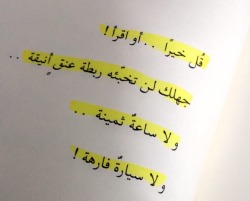 قُل خيرًا ... أو اقرأ !
جهلك لن تخبّئه ربطة عنق أنيقة ..
ولا ساعةٌ ثمينة ...
ولا سيارةٌ فارهة !